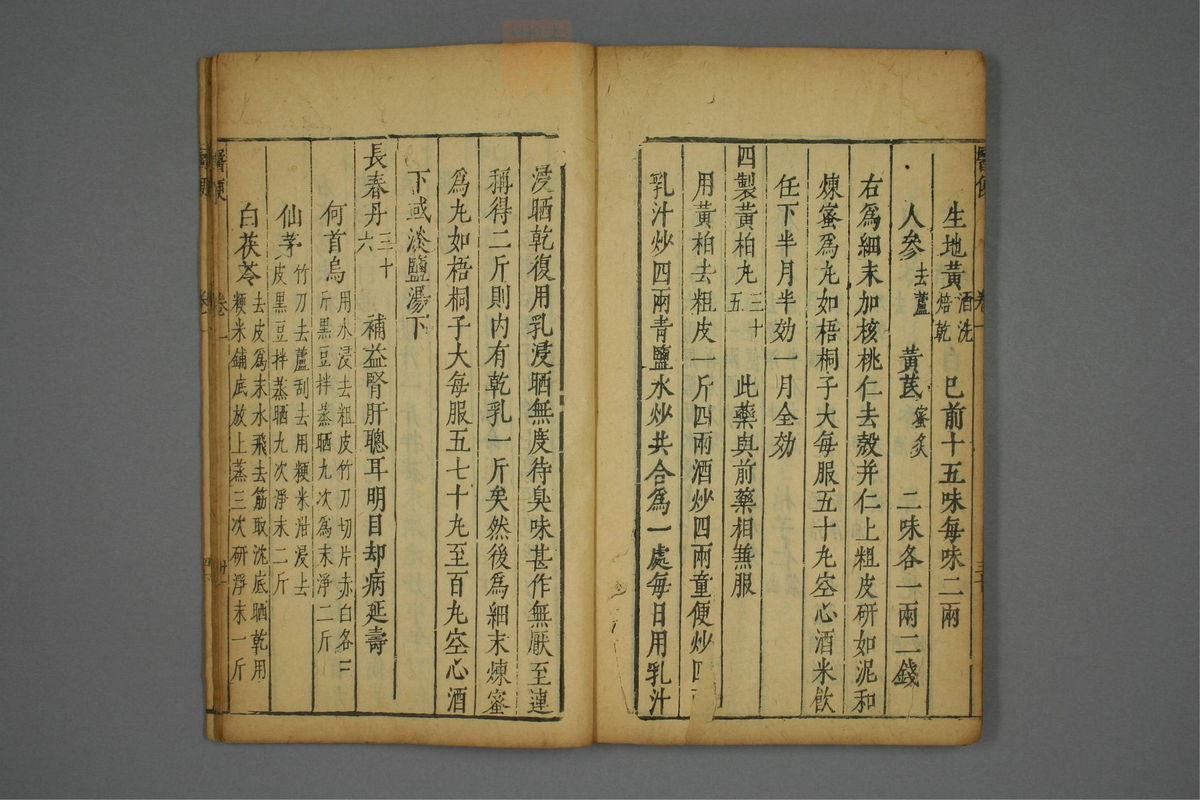 生地黃酒洗焙乾 巳前十五味每味二兩
人參去蘆 黃芪蜜炙 二味各一兩二錢
右爲細末加核桃仁去殼并仁上粗皮研如泥和
煉蜜爲丸如梧桐子大每服五十丸空心酒米飲
任下半月半効一月全効
四製黃柏丸三十五 此藥與前藥相兼服
用黃柏去粗皮一斤四兩酒炒四兩童便炒四
乳汁炒四兩青鹽水炒共合爲一處每日用乳汁
浸晒乾復用乳浸晒無度待臭味甚作無厭至連
稱得二斤則内有乾乳一斤矣然後爲細末煉蜜
爲丸如梧桐子大每服五七十丸至百丸空心酒
下或淡鹽湯下
長春丹三十六 補益腎肝聰耳明目却病延壽
何首烏用水浸去粗皮竹刀切片赤白各二斤黑豆拌蒸晒九次爲末淨二斤
仙茅竹刀去蘆刮去用粳米泔浸去皮黑豆拌蒸晒九次淨末二斤
白茯苓去皮爲末水飛去筋取沈底晒乾用粳米鋪底放上蒸三次研淨末一斤
醫便 卷一